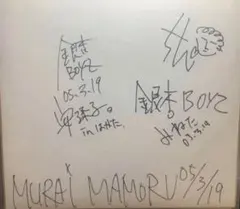 銀杏
BOYZ
05.3.19
in はかた。
銀杏BOYZ
みねた
05.3.19
MURAI MAMORU 05/3/19